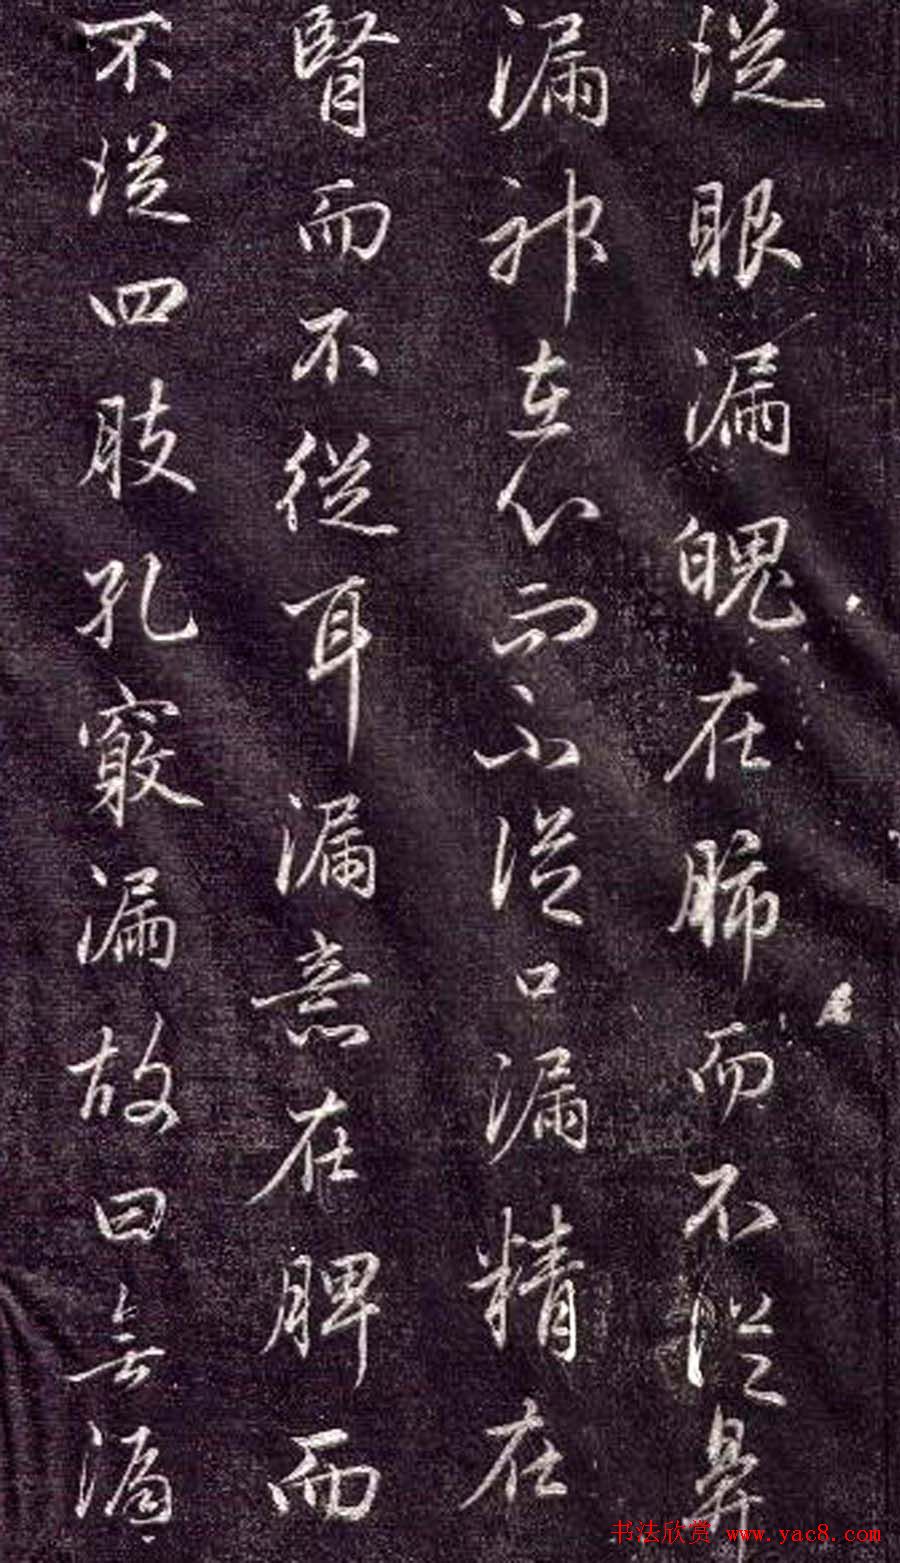 從眼漏魄在肺而不從鼻
漏神在心而不從口漏精在
腎而不從耳漏意在脾而
不從四肢孔竅漏故曰無漏
书法欣赏 www.yac8.com